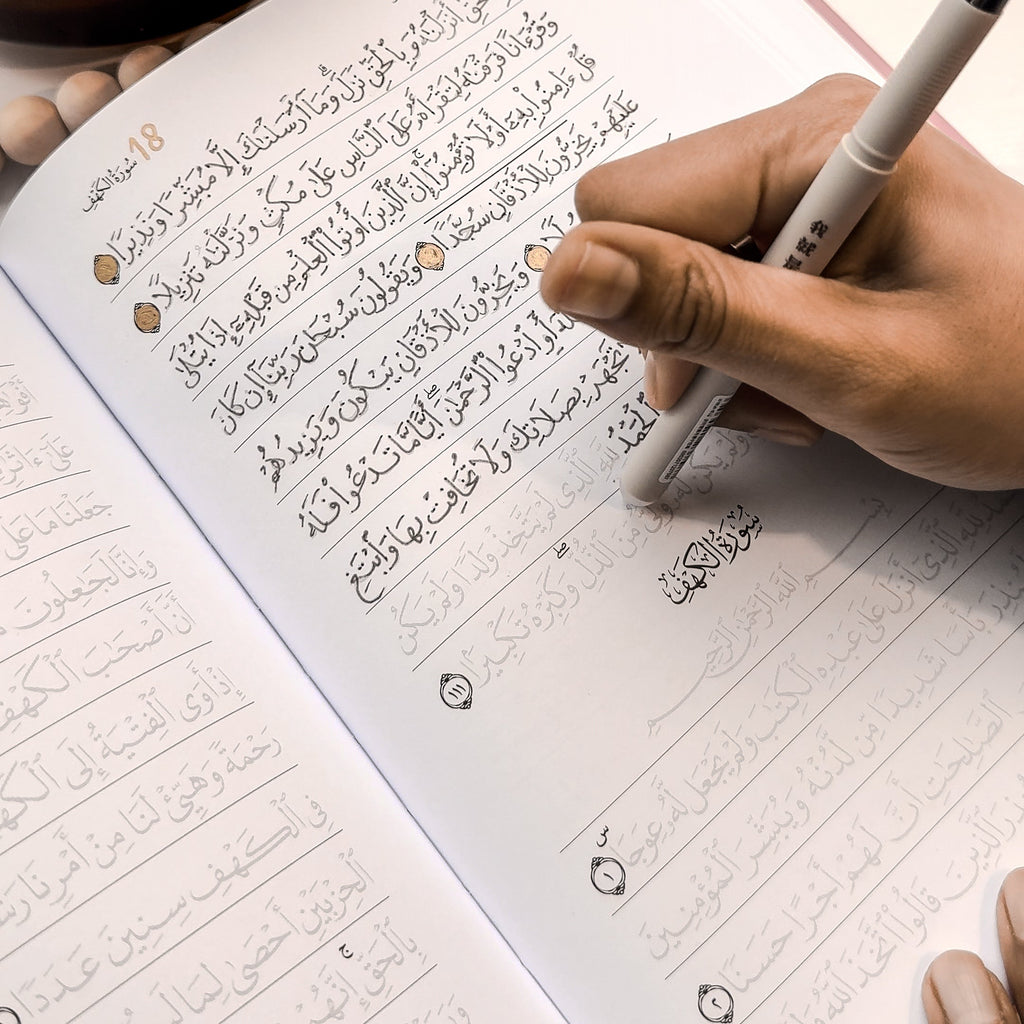 18
سُورَةُ الكَهْفِ
حَقِّ أَنزَلْنَٰهُ وَبِٱلْحَقِّ نَزَلَ وَمَآ أَرْسَلْنَٰكَ إِلَّا مُبَشِّرًا وَنَذِيرًا
وَقُرْءَانًا فَرَقْنَٰهُ لِتَقْرَأَهُۥ عَلَى ٱلنَّاسِ عَلَىٰ مُكْثٍ وَنَزَّلْنَٰهُ تَنزِيلًا
قُلْ ءَامِنُوا۟ بِهِۦٓ أَوْ لَا تُؤْمِنُوٓا۟ إِنَّ ٱلَّذِينَ أُوتُوا۟ ٱلْعِلْمَ مِن قَبْلِهِۦٓ إِذَا يُتْلَىٰ
عَلَيْهِمْ يَخِرُّونَ لِلْأَذْقَانِ سُجَّدًا وَيَقُولُونَ سُبْحَٰنَ رَبِّنَآ إِن كَانَ
وَيَخِرُّونَ لِلْأَذْقَانِ يَبْكُونَ وَيَزِيدُهُمْ
أَوِ ٱدْعُوا۟ ٱلرَّحْمَٰنَ أَيًّا مَّا تَدْعُوا۟ فَلَهُ
تَجْهَرْ بِصَلَاتِكَ وَلَا تُخَافِتْ بِهَا وَٱبْتَغِ
ٱلْحَمْدُ لِلَّهِ ٱلَّذِى لَمْ يَتَّخِذْ وَلَدًا وَلَمْ يَكُن
وَلَمْ يَكُن لَّهُۥ وَلِىٌّ مِّنَ ٱلذُّلِّ وَكَبِّرْهُ تَكْبِيرًۢا ١١١
سُورَةُ الكَهْفِ
بِسْمِ ٱللَّهِ ٱلرَّحْمَٰنِ ٱلرَّحِيمِ
لِلَّهِ ٱلَّذِىٓ أَنزَلَ عَلَىٰ عَبْدِهِ ٱلْكِتَٰبَ وَلَمْ يَجْعَل لَّهُۥ عِوَجَا ١
بَأْسًا شَدِيدًا مِّن لَّدُنْهُ وَيُبَشِّرَ ٱلْمُؤْمِنِينَ
ٱلصَّٰلِحَٰتِ أَنَّ لَهُمْ أَجْرًا حَسَنًا ٢
ٱلَّذِينَ قَالُوا۟ ٱتَّخَذَ ٱللَّهُ
جَعَلْنَا مَا عَلَى
وَإِنَّا لَجَٰعِلُونَ
أَنَّ أَصْحَٰبَ ٱلْكَهْفِ
إِذْ أَوَى ٱلْفِتْيَةُ إِلَى ٱلْكَهْفِ
رَحْمَةً وَهَيِّئْ لَنَا مِنْ أَمْرِنَا
فِى ٱلْكَهْفِ سِنِينَ عَدَدًا
ٱلْحِزْبَيْنِ أَحْصَىٰ لِمَا
بِٱلْحَقِّ إِنَّهُمْ